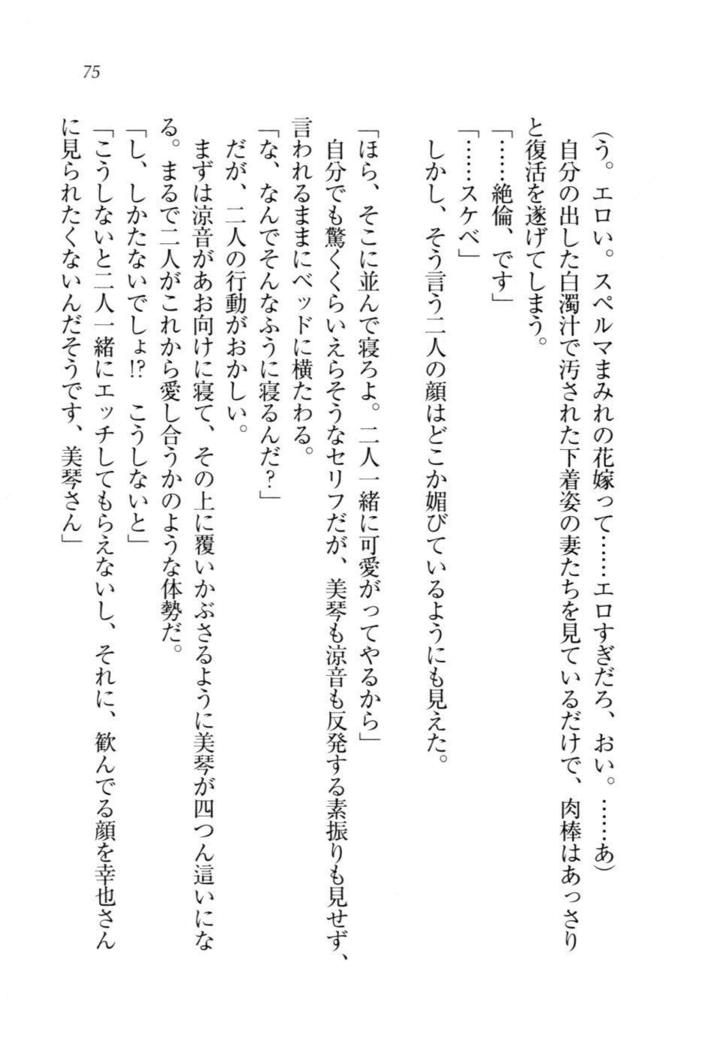 75
(う。エロい。スペルマまみれの花嫁って……エロすぎだろ、おい。……あ)
自分の出した白濁汁で汚された下着姿の妻たちを見ているだけで、肉棒はあっさり
と復活を遂げてしまう。
「……絶倫、です」
「……スケベ」
しかし、そう言う二人の顔はどこか媚びているようにも見えた。
「ほら、そこに並んで寝ろよ。二人一緒に可愛がってやるから」
自分でも驚くくらいえらそうなセリフだが、美琴も涼音も反発する素振りも見せず、
言われるままにベッドに横たわる。
「な、なんでそんなふうに寝るんだ?」
だが、二人の行動がおかしい。
まずは涼音があお向けに寝て、その上に覆いかぶさるように美琴が四つん這いにな
る。まるで二人がこれから愛し合うかのような体勢だ。
「し、しかたないでしょ!? こうしないと」
「こうしないと二人一緒にエッチしてもらえないし、それに、歓んでる顔を幸也さん
に見られたくないんだそうです、美琴さん」